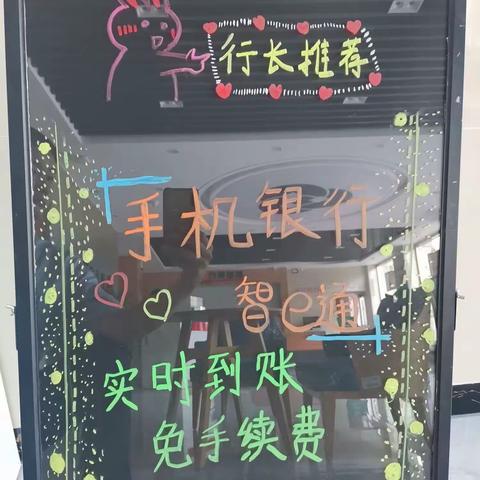 行长推荐
手机银行
智e通
实时到账
免手续费